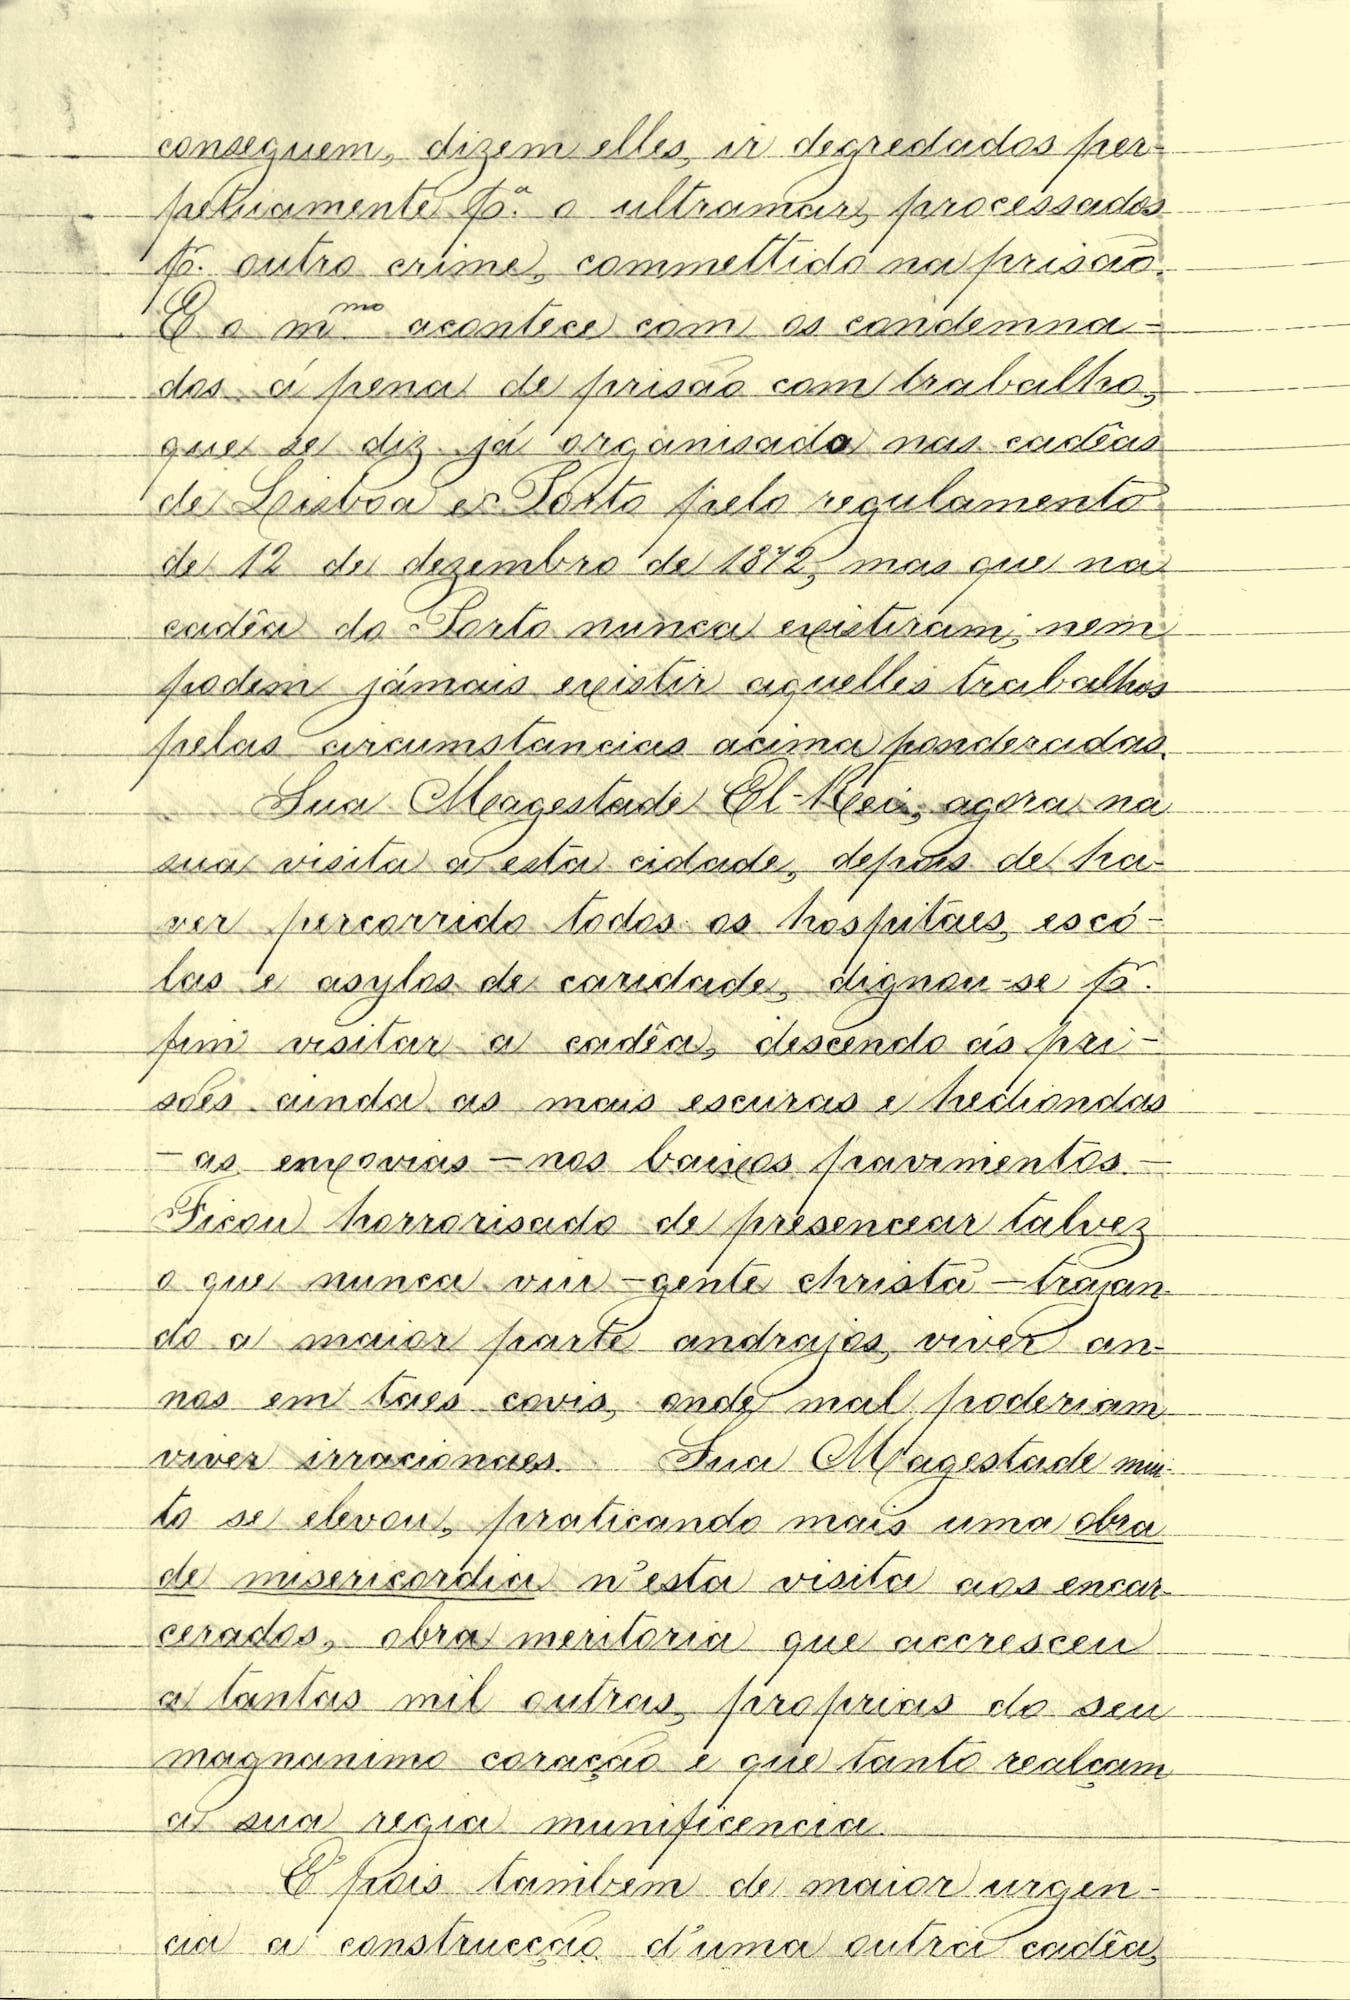 conseguem, dizem elles, ir degredados per-
petuamente p.ª o ultramar, processados
p.r outro crime, commettido na prisão.
E o m.mo acontece com os condemna-
dos á pena de prisão com trabalho,
que se diz já organisado nas cadêas
de Lisboa e Porto pelo regulamento
de 12 de dezembro de 1872, mas que na
cadêa do Porto nunca existiram, nem
podem jámais existir aquelles trabalhos
pelas circumstancias acima ponderadas.
Sua Magestade El-Rei, agora na
sua visita a esta cidade, depois de ha-
ver percorrido todos os hospitaes, escó-
las e asylos de caridade, dignou-se p.r
fim visitar a cadêa, descendo ás pri-
sões ainda as mais escuras e hediondas
- as enxovias - nos baixos pavimentos. -
Ficou horrorisado de presencear talvez
o que nunca viu - gente christã - trajan-
do a maior parte andrajos, viver an-
nos em taes covis, onde mal poderiam
viver irracionaes. Sua Magestade mui-
to se elevou, praticando mais uma obra
de misericordia n'esta visita aos encar-
cerados, obra meritoria que accresceu
a tantas mil outras, proprias do seu
magnanimo coração e que tanto realçam
a sua regia munificencia.
E' pois tambem de maior urgen-
cia a construcção d'uma outra cadêa,